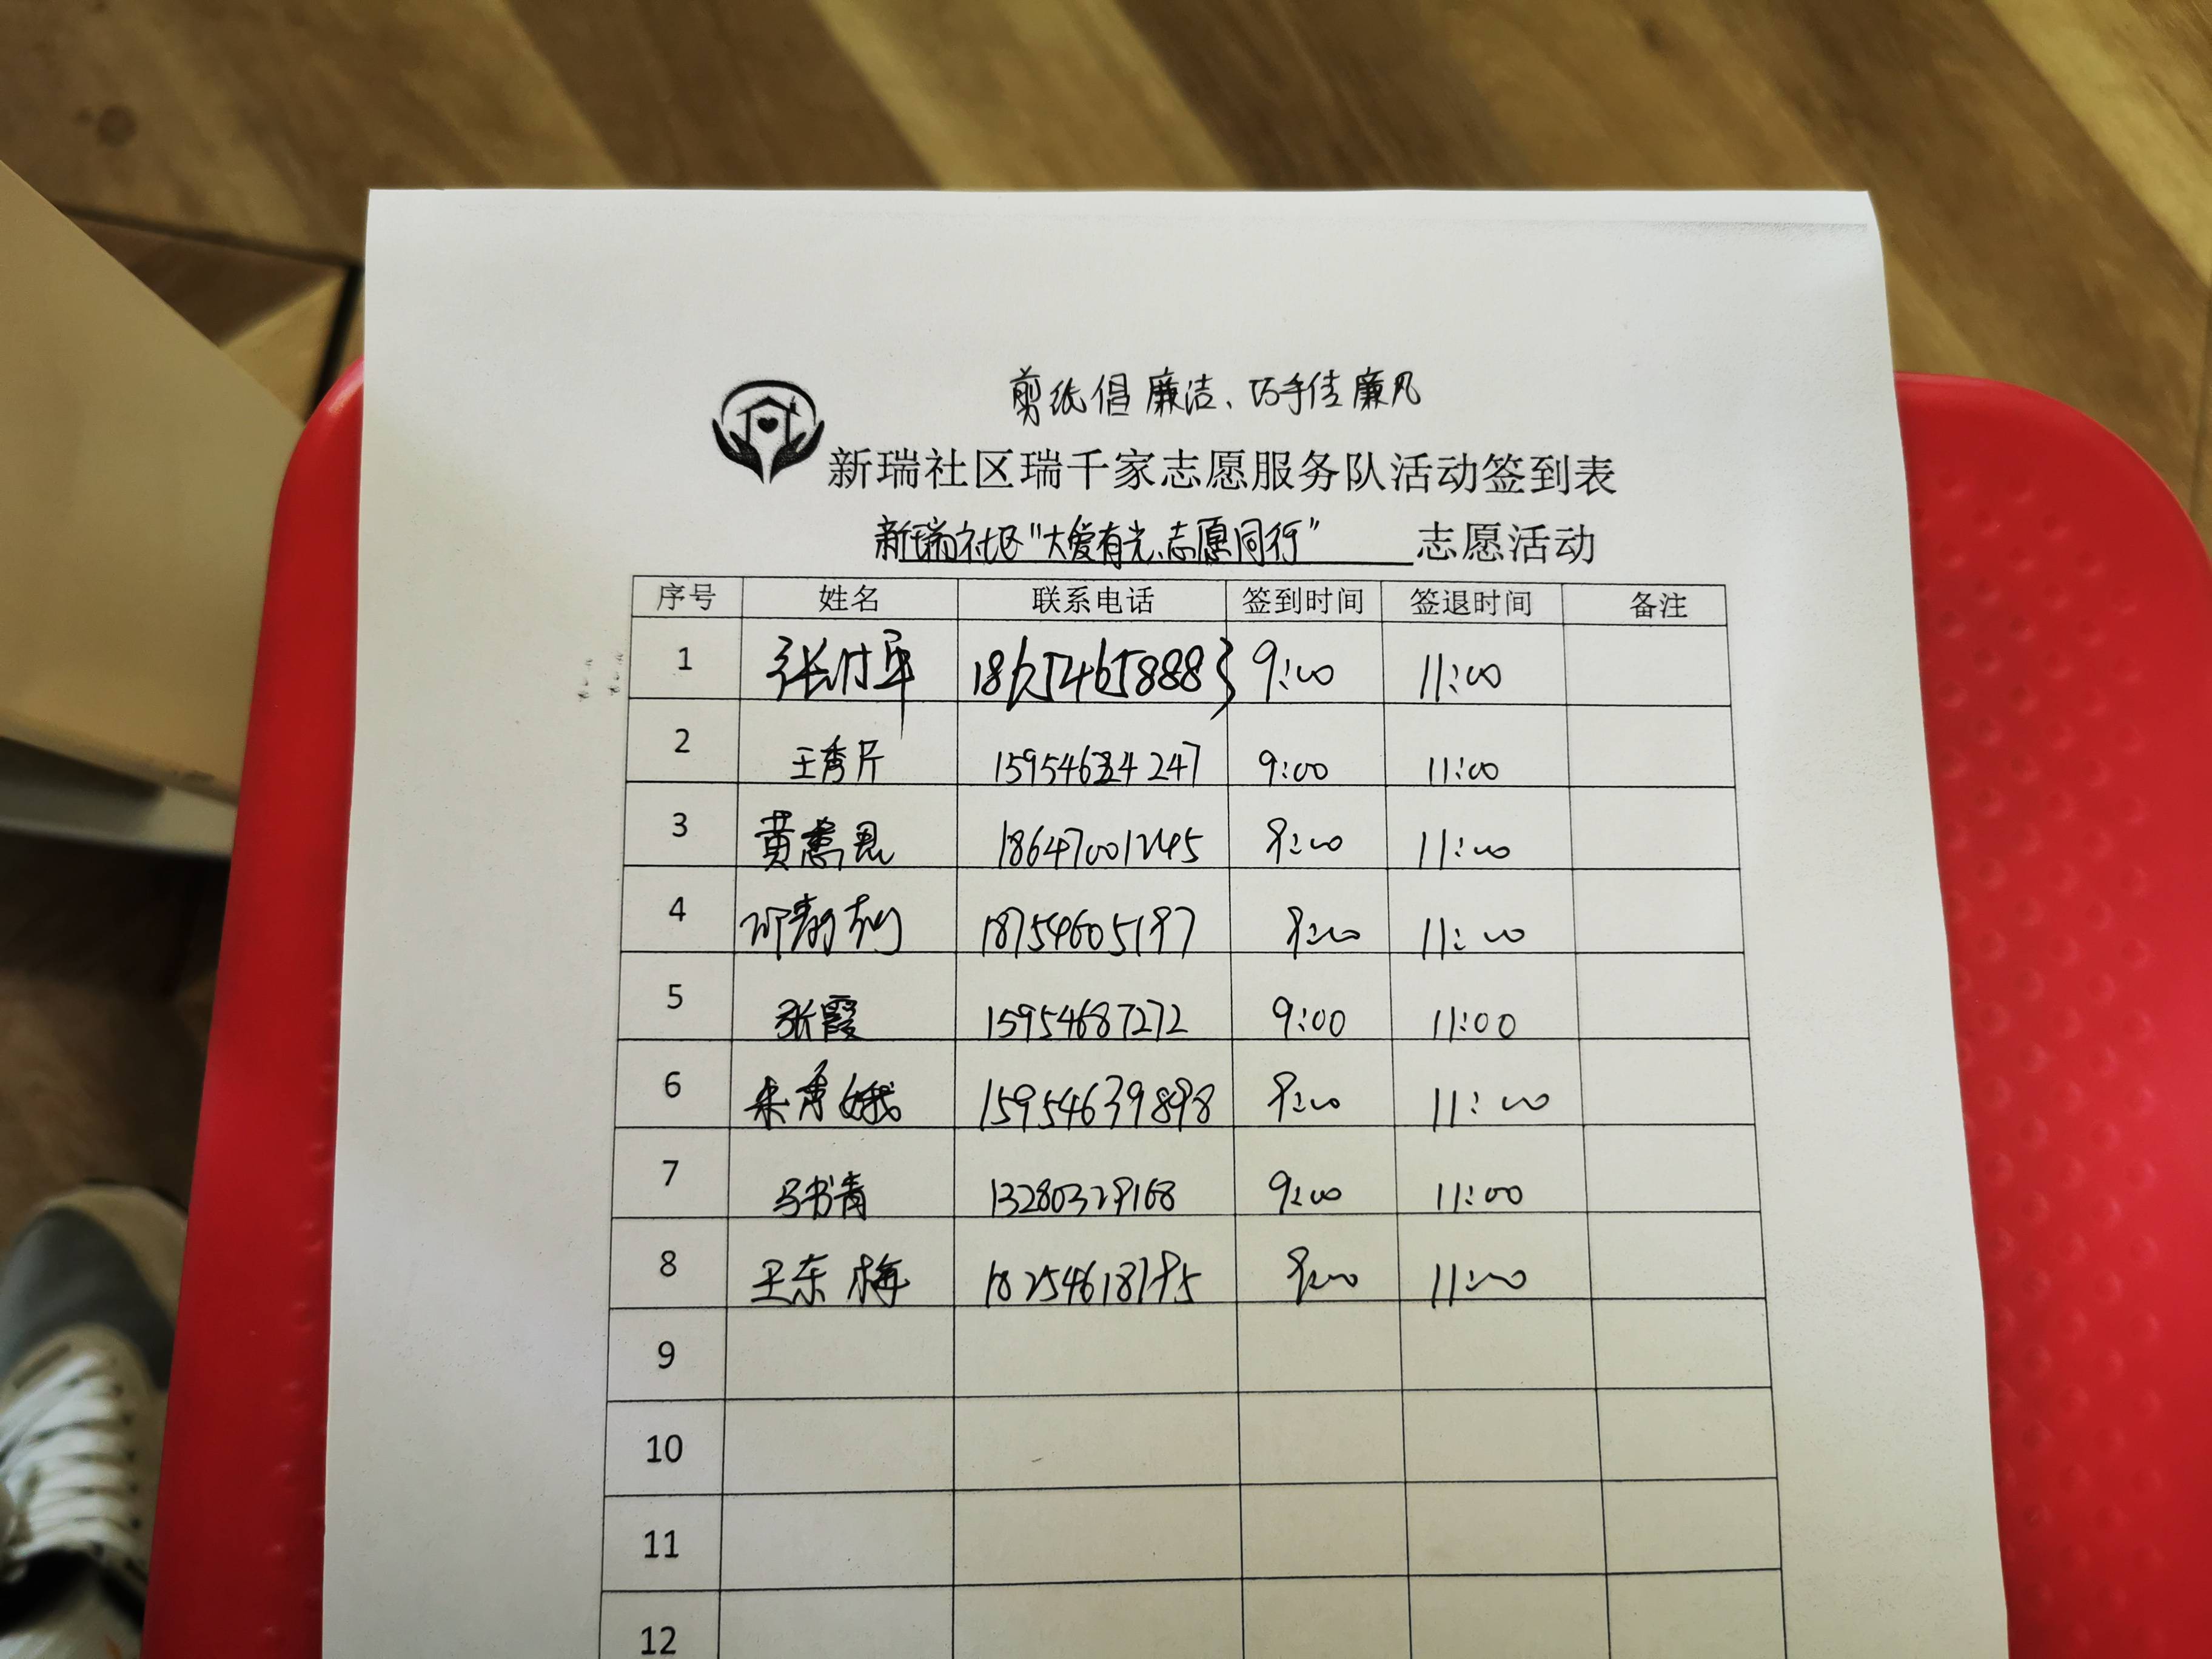 剪纸倡廉洁、巧手传廉风
新瑞社区瑞千家志愿服务队活动签到表
新瑞社区“大爱有光、志愿同行” 志愿活动
序号 姓名 联系电话 签到时间 签退时间 备注
1 张付军 18654658883 9:00 11:00
2 王秀芹 9:00 11:00
3 黄 18647001245 9:00 11:00
4 邓 18754605197 9:00 11:00
5 张霞 15954687272 9:00 11:00
6 朱秀娥 15954639898 9:00 11:00
7 马书青 13280329168 9:00 11:00
8 王东梅 18254618195 9:00 11:00
9
10
11
12